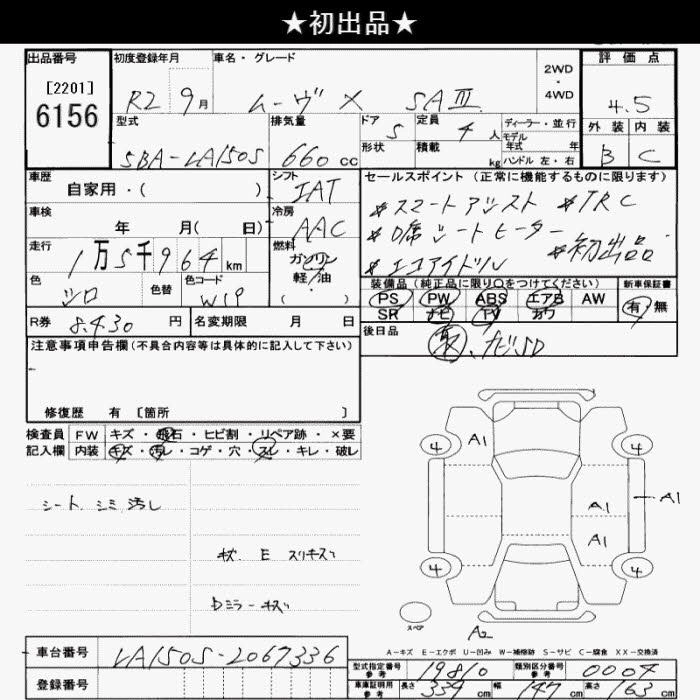 ★初出品★
出品番号 初度登録年月 車名・グレード 2WD・4WD 評価点
[2201]
6156
R2 9月 ムーヴ X SAⅢ 4.5
型式 排気量 ドア 定員 ディーラー・並行
5BA-LA150S 660cc 5 4人
モデル年式 年
形状 積載 kg ハンドル 左・右
外装 内装
B C
車歴 自家用・( )
シフト IAT
セールスポイント(正常に機能するものに限ります)
#スマートアシスト #TRC
#D席シートヒーター
#エコアイドル #初出品
車検 年 月( 日)
冷房 AAC
走行 1万5千964km
燃料 ガソリン
軽/油
・( )
色 シロ 色替 色コード W19
装備品(純正品に限り○をつけてください) 新車保証書
PS PW ABS エアB AW 有・無
SR ナビ TV カワ
R券 8.430円 名変期限 月 日
後日品 取、ナビSD
注意事項申告欄(不具合内容等は具体的に記入して下さい)
修復歴 有 〔箇所 〕
検査員 FW キズ・飛石・ヒビ割・リペア跡・×要
記入欄 内装 キズ・汚レ・コゲ・穴・スレ・キレ・破レ
シート シミ 汚レ
キズ E スリキズ
Dミラー キズ
4 A1 4
A1 A1
A1
4 4
スペア
A2
A-キズ E-エクボ U-凹み W-補修跡 S-サビ C-腐食 XX-交換済
車台番号 LA150S-2067336
登録番号
型式指定番号 参考 19810 類別区分番号 参考 0004
車庫証明用 参考 長さ 339cm 幅 147cm 高さ 163cm